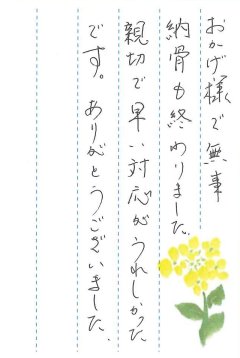 おかげ様で無事
納骨も終わりました。
親切で早い対応がうれしかった
です。ありがとうございました。